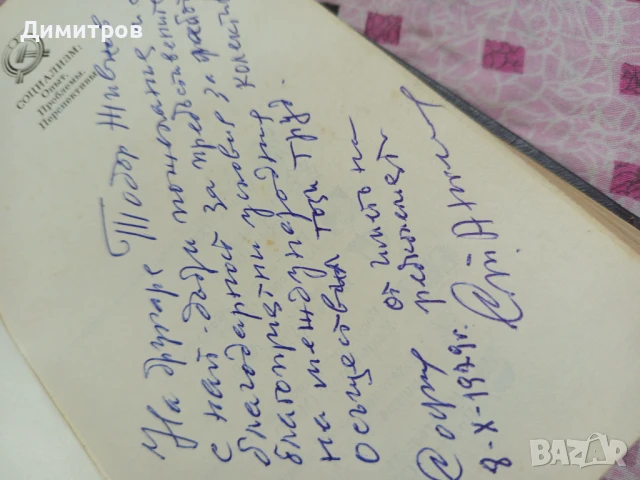 Димитров
СОЦИАЛИЗМ:
Опыт.
Проблемы.
Перспективы
На другаря Тодор Живков
с най-добри пожелания и
благодарност за предоставените
благоприятни условия за работа
на международния колектив
осъществил този труд.
от името на
редколегията
София
8-X-1979г.
BAZAR
bg